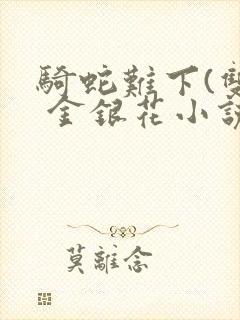 騎蛇難下(雙
金銀花小說
莫離念